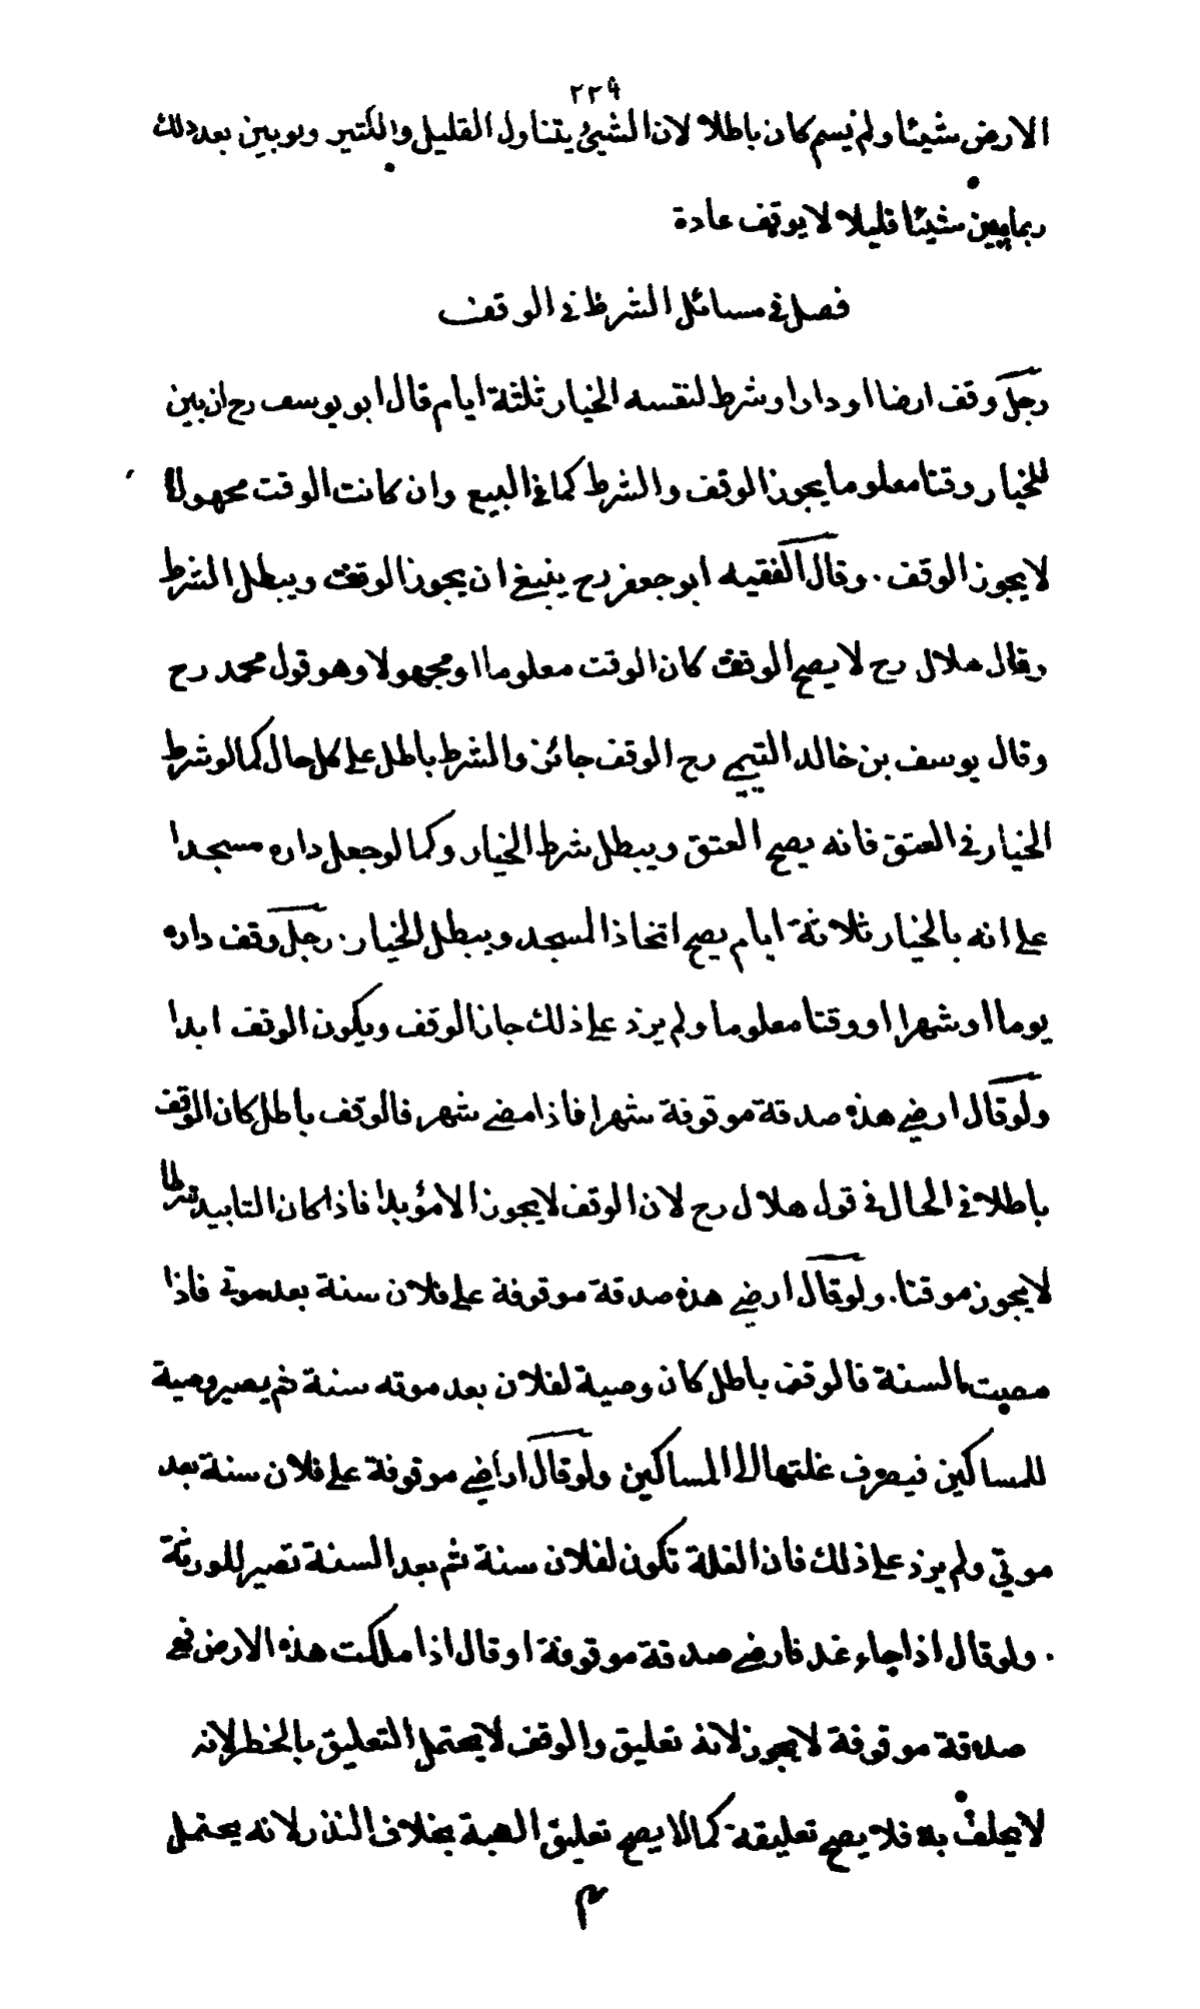 ٢٢٩
الارض شيئا ولم يسم كان باطلا لان الشيئ يتناول القليل والكثير ولو بين بعد ذلك
ربما يبين شيئا قليلا لا يوقف عادة
فصل في مسائل الشرط في الوقف
رجل وقف ارضا او دارا وشرط لنفسه الخيار ثلثة ايام قال ابو يوسف رح ان بين
للخيار وقتا معلوما يجوز الوقف والشرط كما في البيع وان كانت الوقت مجهولا
لا يجوز الوقف . وقال الفقيه ابو جعفر رح ينبغي ان يجوز الوقف ويبطل الشرط
وقال هلال رح لا يصح الوقف كان الوقت معلوما او مجهولا وهو قول محمد رح
وقال يوسف بن خالد التيمي رح الوقف جائز والشرط باطل على كل حال كما لو شرط
الخيار في العتق فانه يصح العتق ويبطل شرط الخيار وكما لو جعل داره مسجدا
على انه بالخيار ثلاثة ايام يصح اتخاذ المسجد ويبطل الخيار . رجل وقف داره
يوما او شهرا او وقتا معلوما ولم يزد على ذلك جاز الوقف ويكون الوقف ابدا
ولو قال ارضي هذه صدقة موقوفة شهرا فاذا مضى شهر فالوقف باطل كان الوقف
باطلا في الحال في قول هلال رح لان الوقف لا يجوز الا مؤبدا فاذا كان التابيد شرطا
لا يجوز موقتا . ولو قال ارضي هذه صدقة موقوفة على فلان سنة بعد موتي فاذا
مضت السنة فالوقف باطل كان وصية لفلان بعد موته سنة ثم يصير وصية
للمساكين فيصرف غلتها الى المساكين ولو قال اراضي موقوفة على فلان سنة بعد
موتي ولم يزد على ذلك فان الغلة تكون لفلان سنة ثم بعد السنة تصير للورثة
. ولو قال اذا جاء غد فارضي صدقة موقوفة او قال اذا ملكت هذه الارض فهي
صدقة موقوفة لا يجوز لانه تعليق والوقف لا يحتمل التعليق بالخطر لانه
لا يحلف به فلا يصح تعليقه كما لا يصح تعليق الهبة بخلاف النذر لانه يحتمل